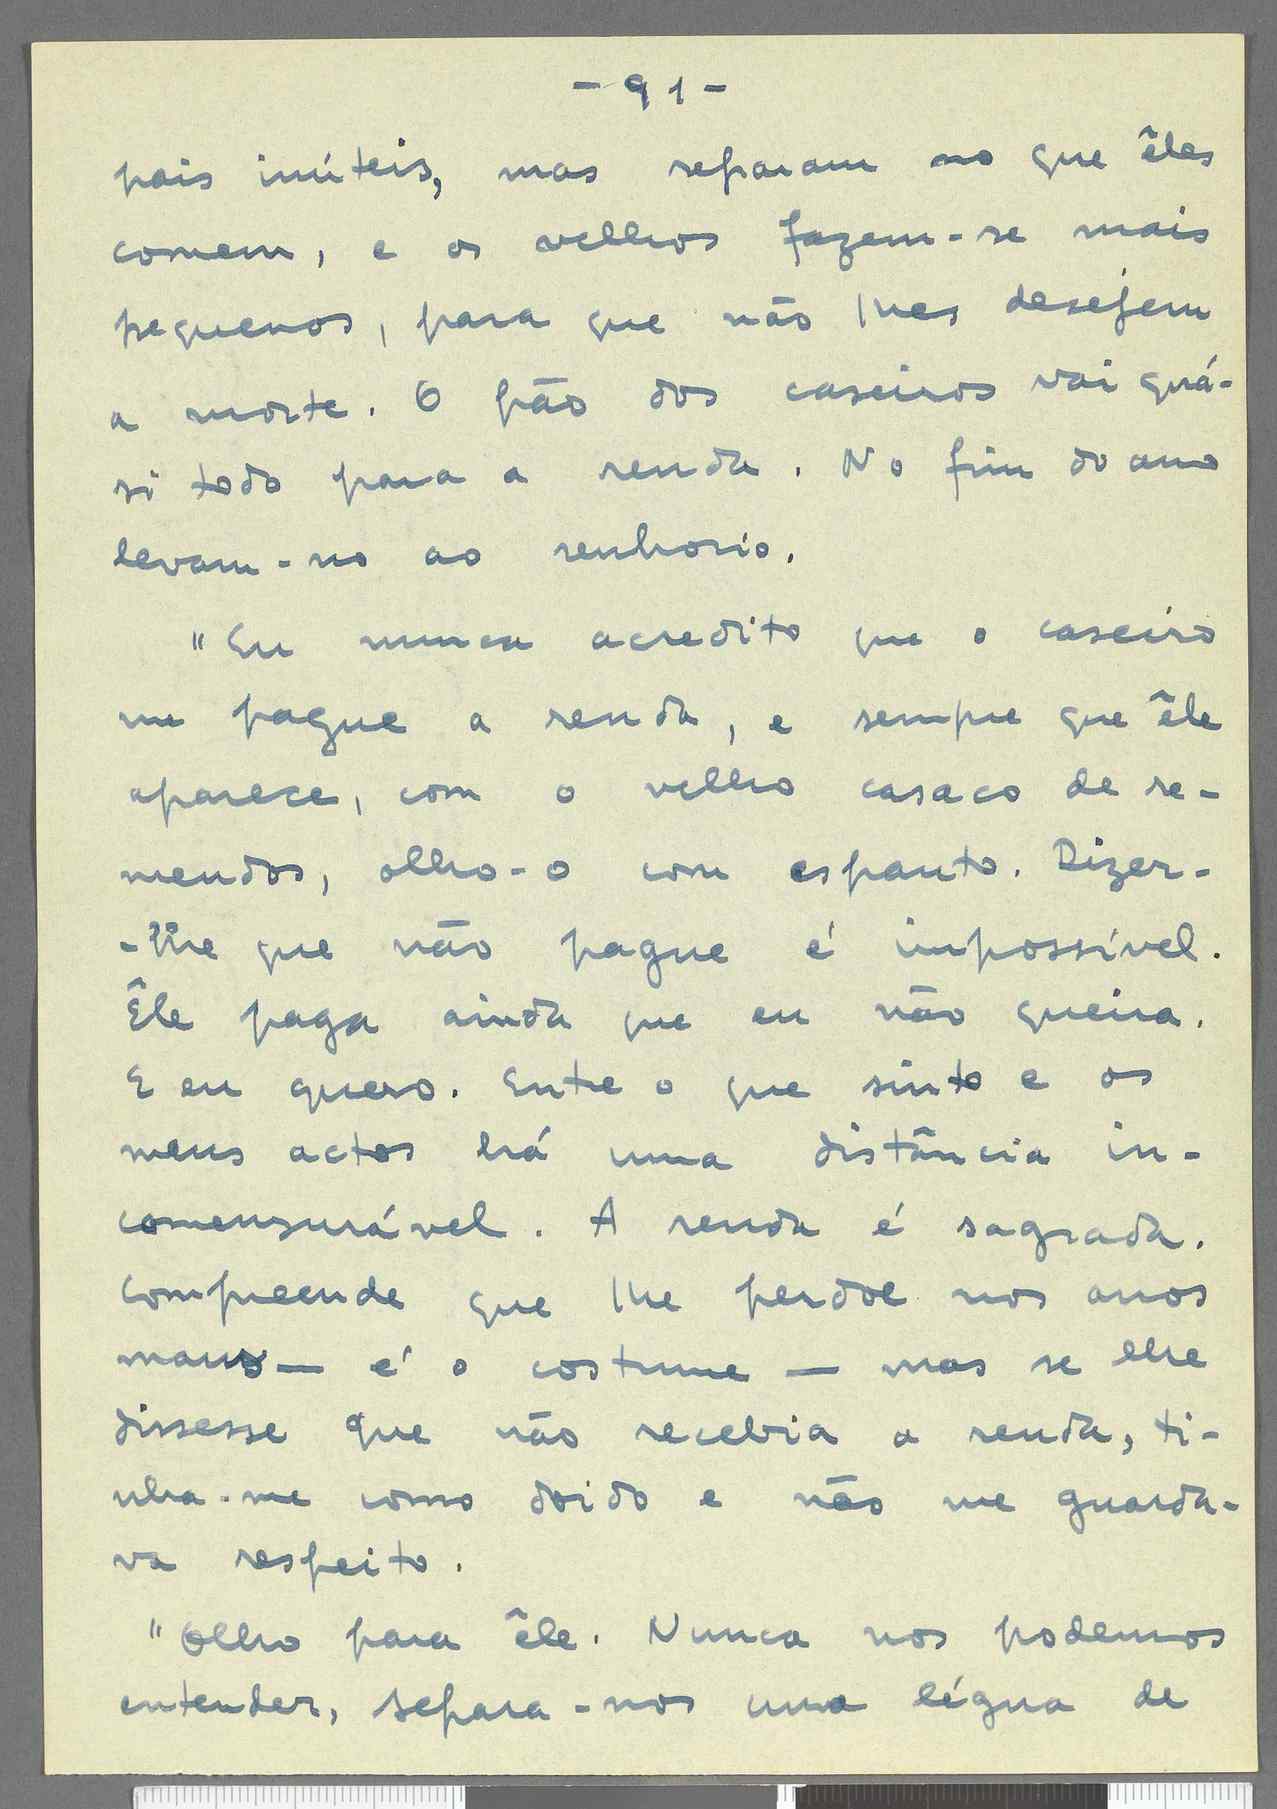 - 91 -
pais inúteis, mas reparam no que êles
comem, e os velhos fazem-se mais
pequenos, para que não lhes desejem
a morte. O pão dos caseiros vai quá-
si todo para a renda. No fim do ano
levam-no ao senhorio.
"Eu nunca acredito que o caseiro
me pague a renda, e sempre que êle
aparece, com o velho casaco de re-
mendos, olho-o com espanto. Dizer-
-lhe que não pague é impossível.
Êle paga ainda que eu não queira.
E eu quero. Entre o que sinto e os
meus actos há uma distância in-
comensurável. A renda é sagrada.
Compreende que lhe perdoe nos anos
maus — é o costume — mas se lhe
dissesse que não recebia a renda, ti-
nha-me como doido e não me guarda-
va respeito.
"Olho para êle. Nunca nos podemos
entender, separa-nos uma légua de